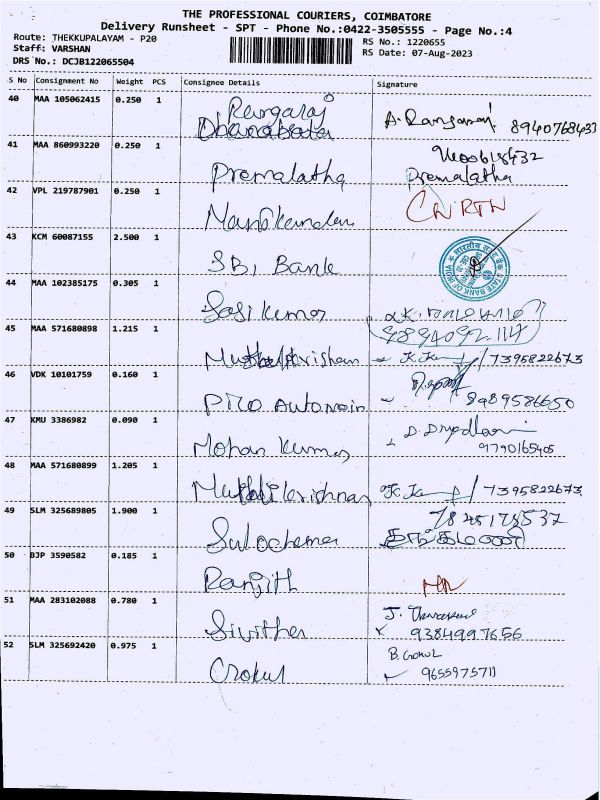 THE PROFESSIONAL COURIERS, COIMBATORE
Delivery Runsheet - SPT - Phone No.:0422-3505555 - Page No.:4
Route: THEKKUPALAYAM - P20
Staff: VARSHAN
DRS No.: DCJB122065504
RS No.: 1220655
RS Date: 07-Aug-2023
S No Consignment No Weight PCS Consignee Details Signature
40 MAA 105062415 0.250 1 Rangaraj
8940768433
41 MAA 860993220 0.250 1 Premalatha
Premalatha
42 VPL 219787901 0.250 1 Manikandan
CN RTN
43 KCM 60087155 2.500 1 SBI Bank
STATE BANK OF INDIA
44 MAA 102385175 0.305 1 Sasi Kumar
45 MAA 571680898 1.215 1 Muthukrishnan
7395822673
46 VDK 10101759 0.160 1
8989586650
47 KMU 3386982 0.090 1 Mohan Kumar
9790165405
48 MAA 571680899 1.205 1 Muthukrishnan
7395822673
49 SLM 325689805 1.900 1 Sulochana
7845178537
50 BJP 3590582 0.185 1 Ranjith
51 MAA 283102088 0.780 1
9384997656
52 SLM 325692420 0.975 1 Gokul
B. Gokul
9655975711